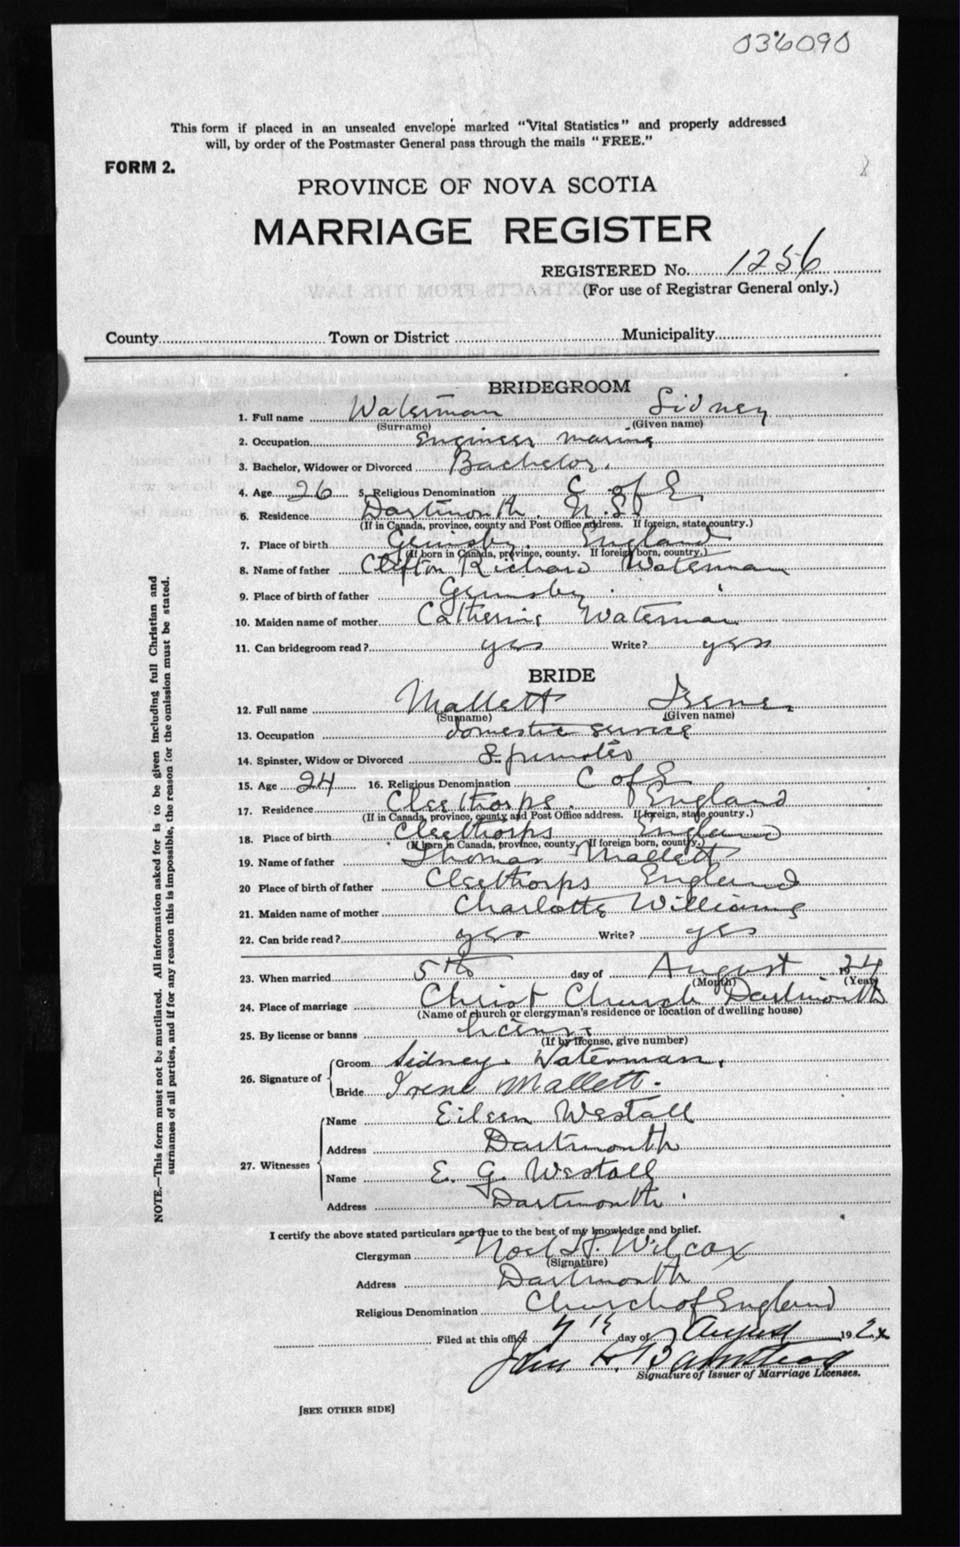 036090
This form if placed in an unsealed envelope marked "Vital Statistics" and properly addressed
will, by order of the Postmaster General pass through the mails "FREE."
FORM 2.
PROVINCE OF NOVA SCOTIA
MARRIAGE REGISTER
REGISTERED No. 1256
(For use of Registrar General only.)
County Town or District Municipality
BRIDEGROOM
1. Full name Waterman Sidney
(Surname) (Given name)
2. Occupation Engineer marine
3. Bachelor, Widower or Divorced Bachelor.
4. Age 26 5. Religious Denomination C of E
6. Residence Dartmouth. N.S.
(If in Canada, province, county and Post Office address. If foreign, state country.)
7. Place of birth Grimsby. England
(If born in Canada, province, county. If foreign born, country.)
8. Name of father Clifton Richard Waterman
9. Place of birth of father Grimsby
10. Maiden name of mother Catherine Waterman
11. Can bridegroom read? yes Write? yes
BRIDE
12. Full name Mallett Irene.
(Surname) (Given name)
13. Occupation domestic service
14. Spinster, Widow or Divorced Spinster
15. Age 24 16. Religious Denomination C of E
17. Residence Cleethorps. England
(If in Canada, province, county and Post Office address. If foreign, state country.)
18. Place of birth Cleethorps England
(If born in Canada, province, county, If foreign born, country.)
19. Name of father Thomas Mallett
20 Place of birth of father Cleethorps England
21. Maiden name of mother Charlotte Williams
22. Can bride read? yes Write? yes
23. When married 5th day of August 24
(Month) (Year)
24. Place of marriage Christ Church Dartmouth
(Name of church or clergyman's residence or location of dwelling house)
25. By license or banns license
(If by license, give number)
26. Signature of Groom Sidney. Waterman.
Bride Irene Mallett.
27. Witnesses
Name Eileen Westall
Address Dartmouth
Name E. G. Westall
Address Dartmouth.
I certify the above stated particulars are true to the best of my knowledge and belief.
Clergyman Noel H. Wilcox
(Signature)
Address Dartmouth
Religious Denomination Church of England
Filed at this office 7th day of August 192
John H.
Signature of Issuer of Marriage Licenses.
[SEE OTHER SIDE]
NOTE.—This form must not be mutilated. All information asked for is to be given including full Christian and
surnames of all parties, and if for any reason this is impossible, the reason for the omission must be stated.